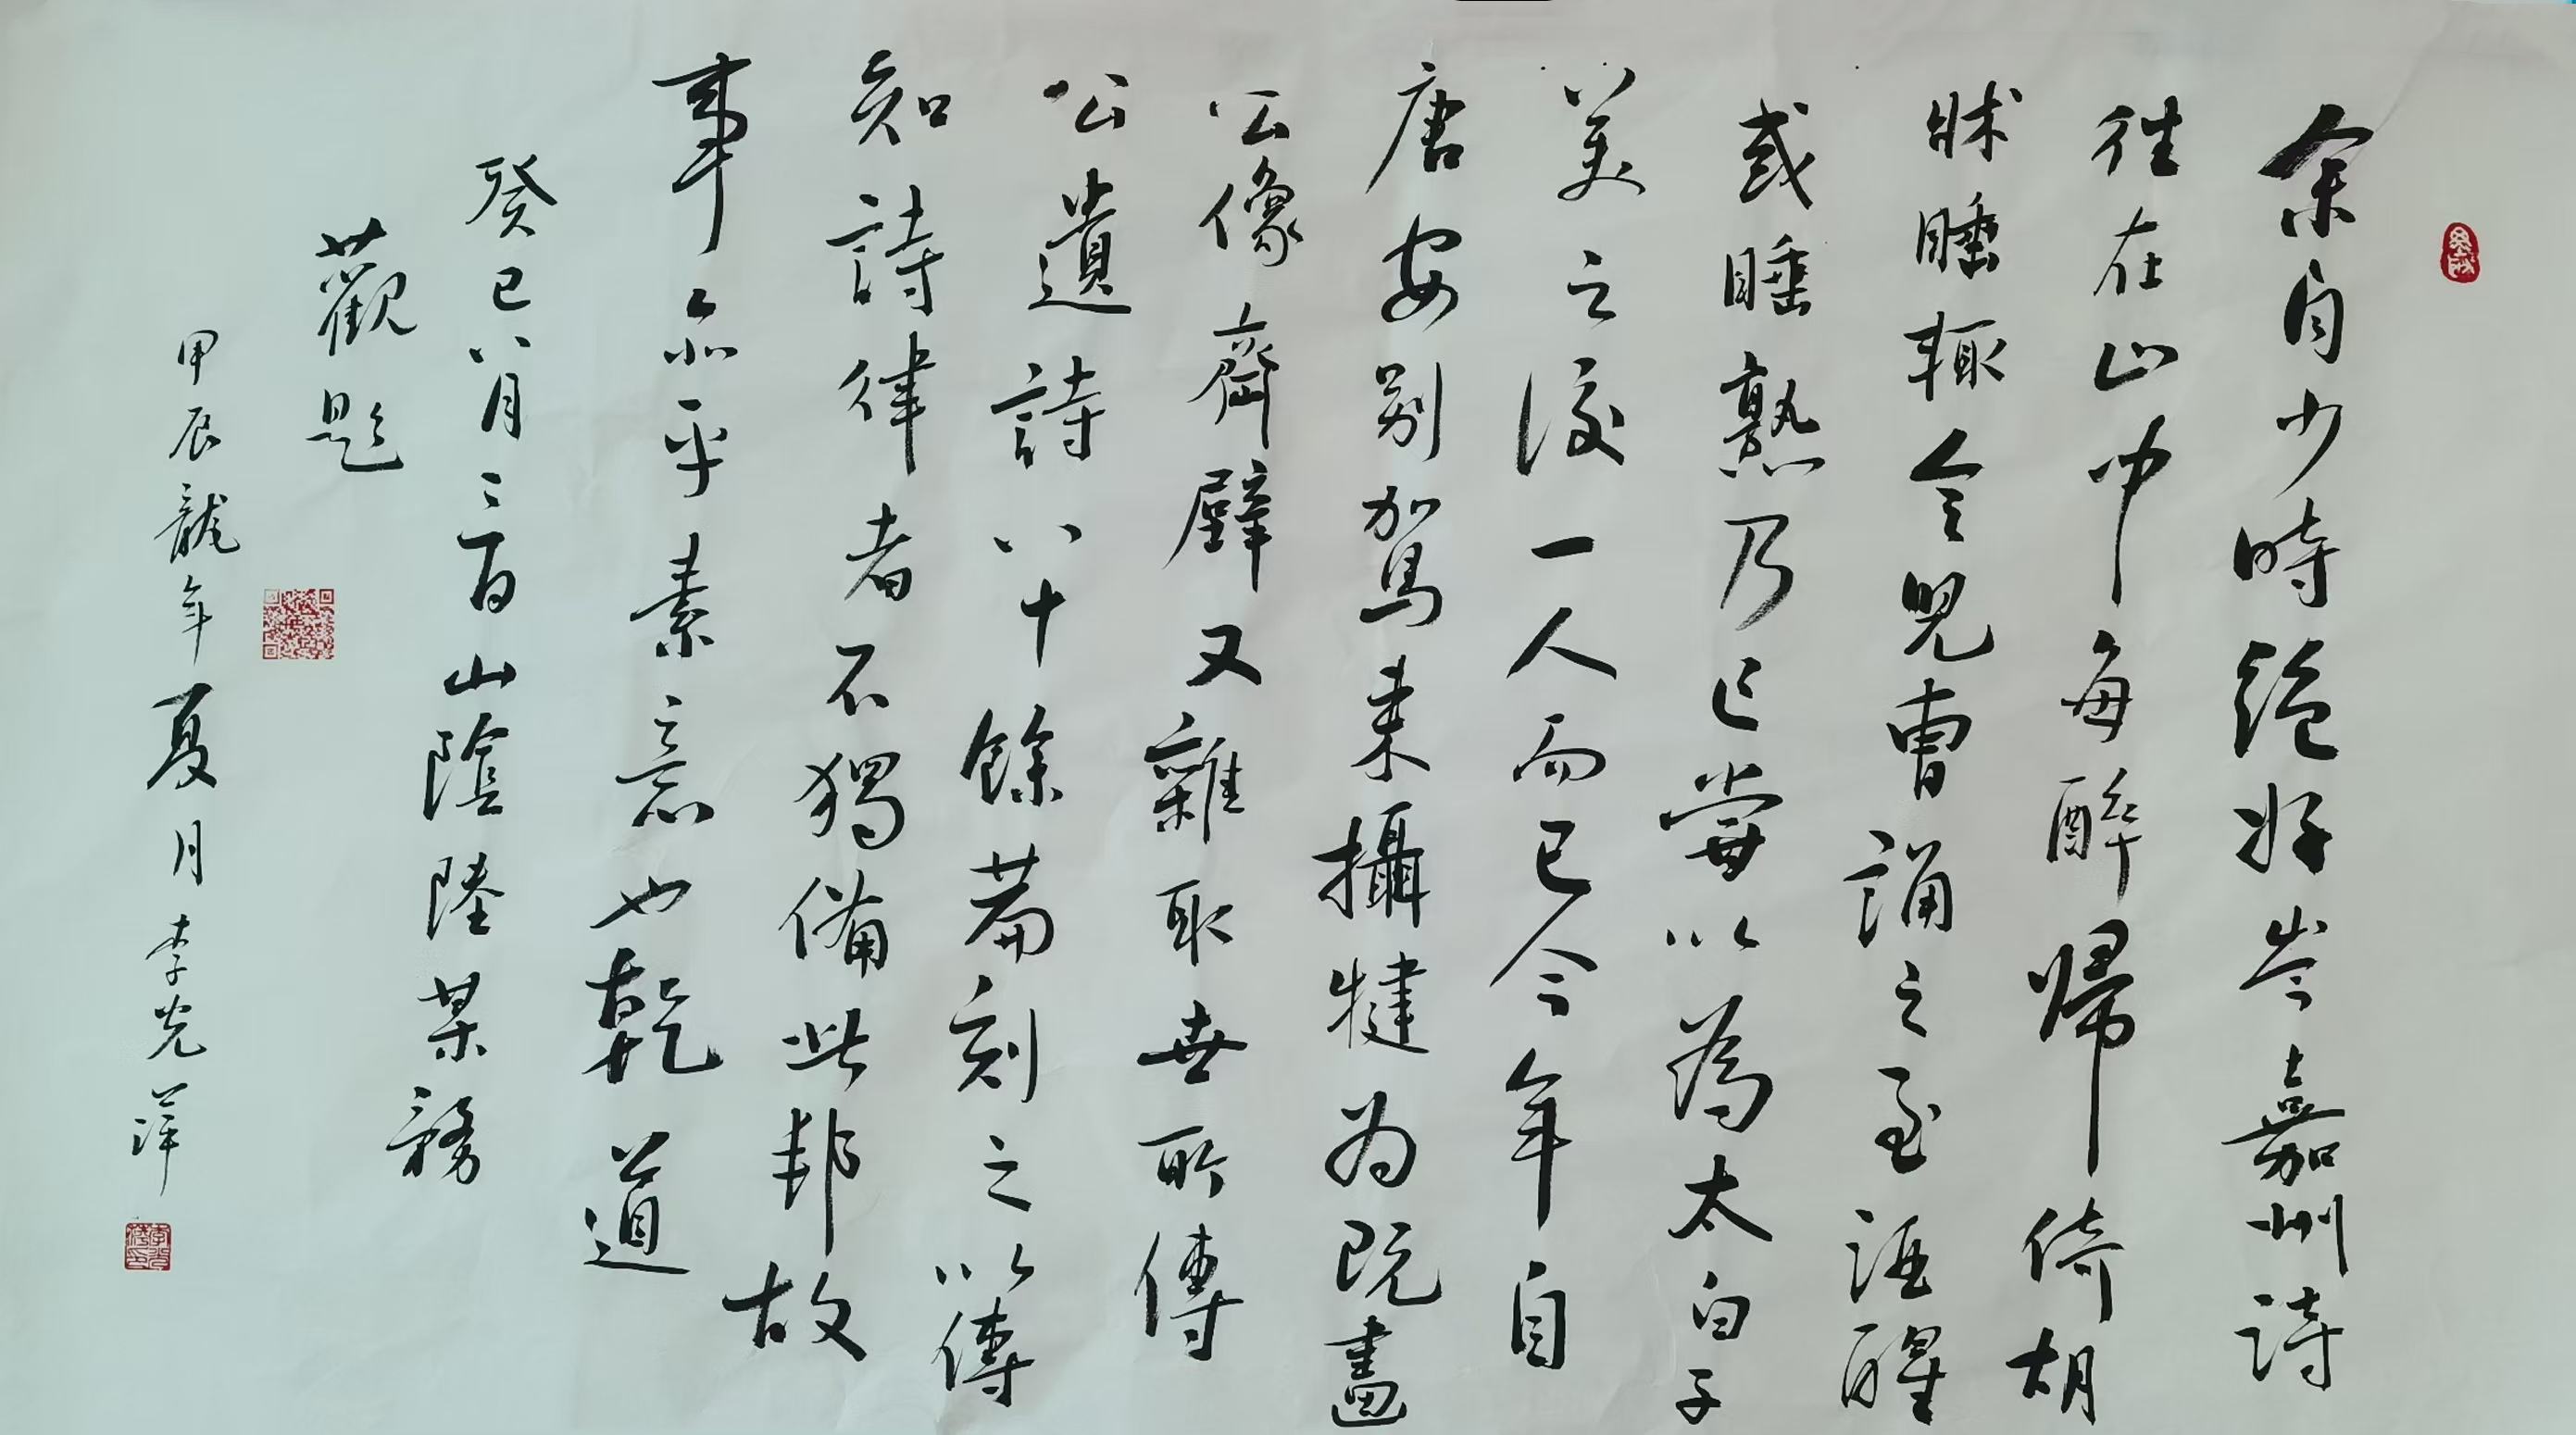 余自少時絕好岑嘉州詩
往在山中每醉歸倚胡
牀睡輒令兒曹誦之至酒醒
或睡熟乃已嘗以為太白子
美之後一人而已今年自
唐安別駕來攝犍為既畫
公像齋壁又雜取世所傳
公遺詩八十餘篇刻之以傳
知詩律者不獨備此邦故
事亦平素意也乾道
癸巳八月三日山陰陸某務
觀題
甲辰龍年夏月李光洋